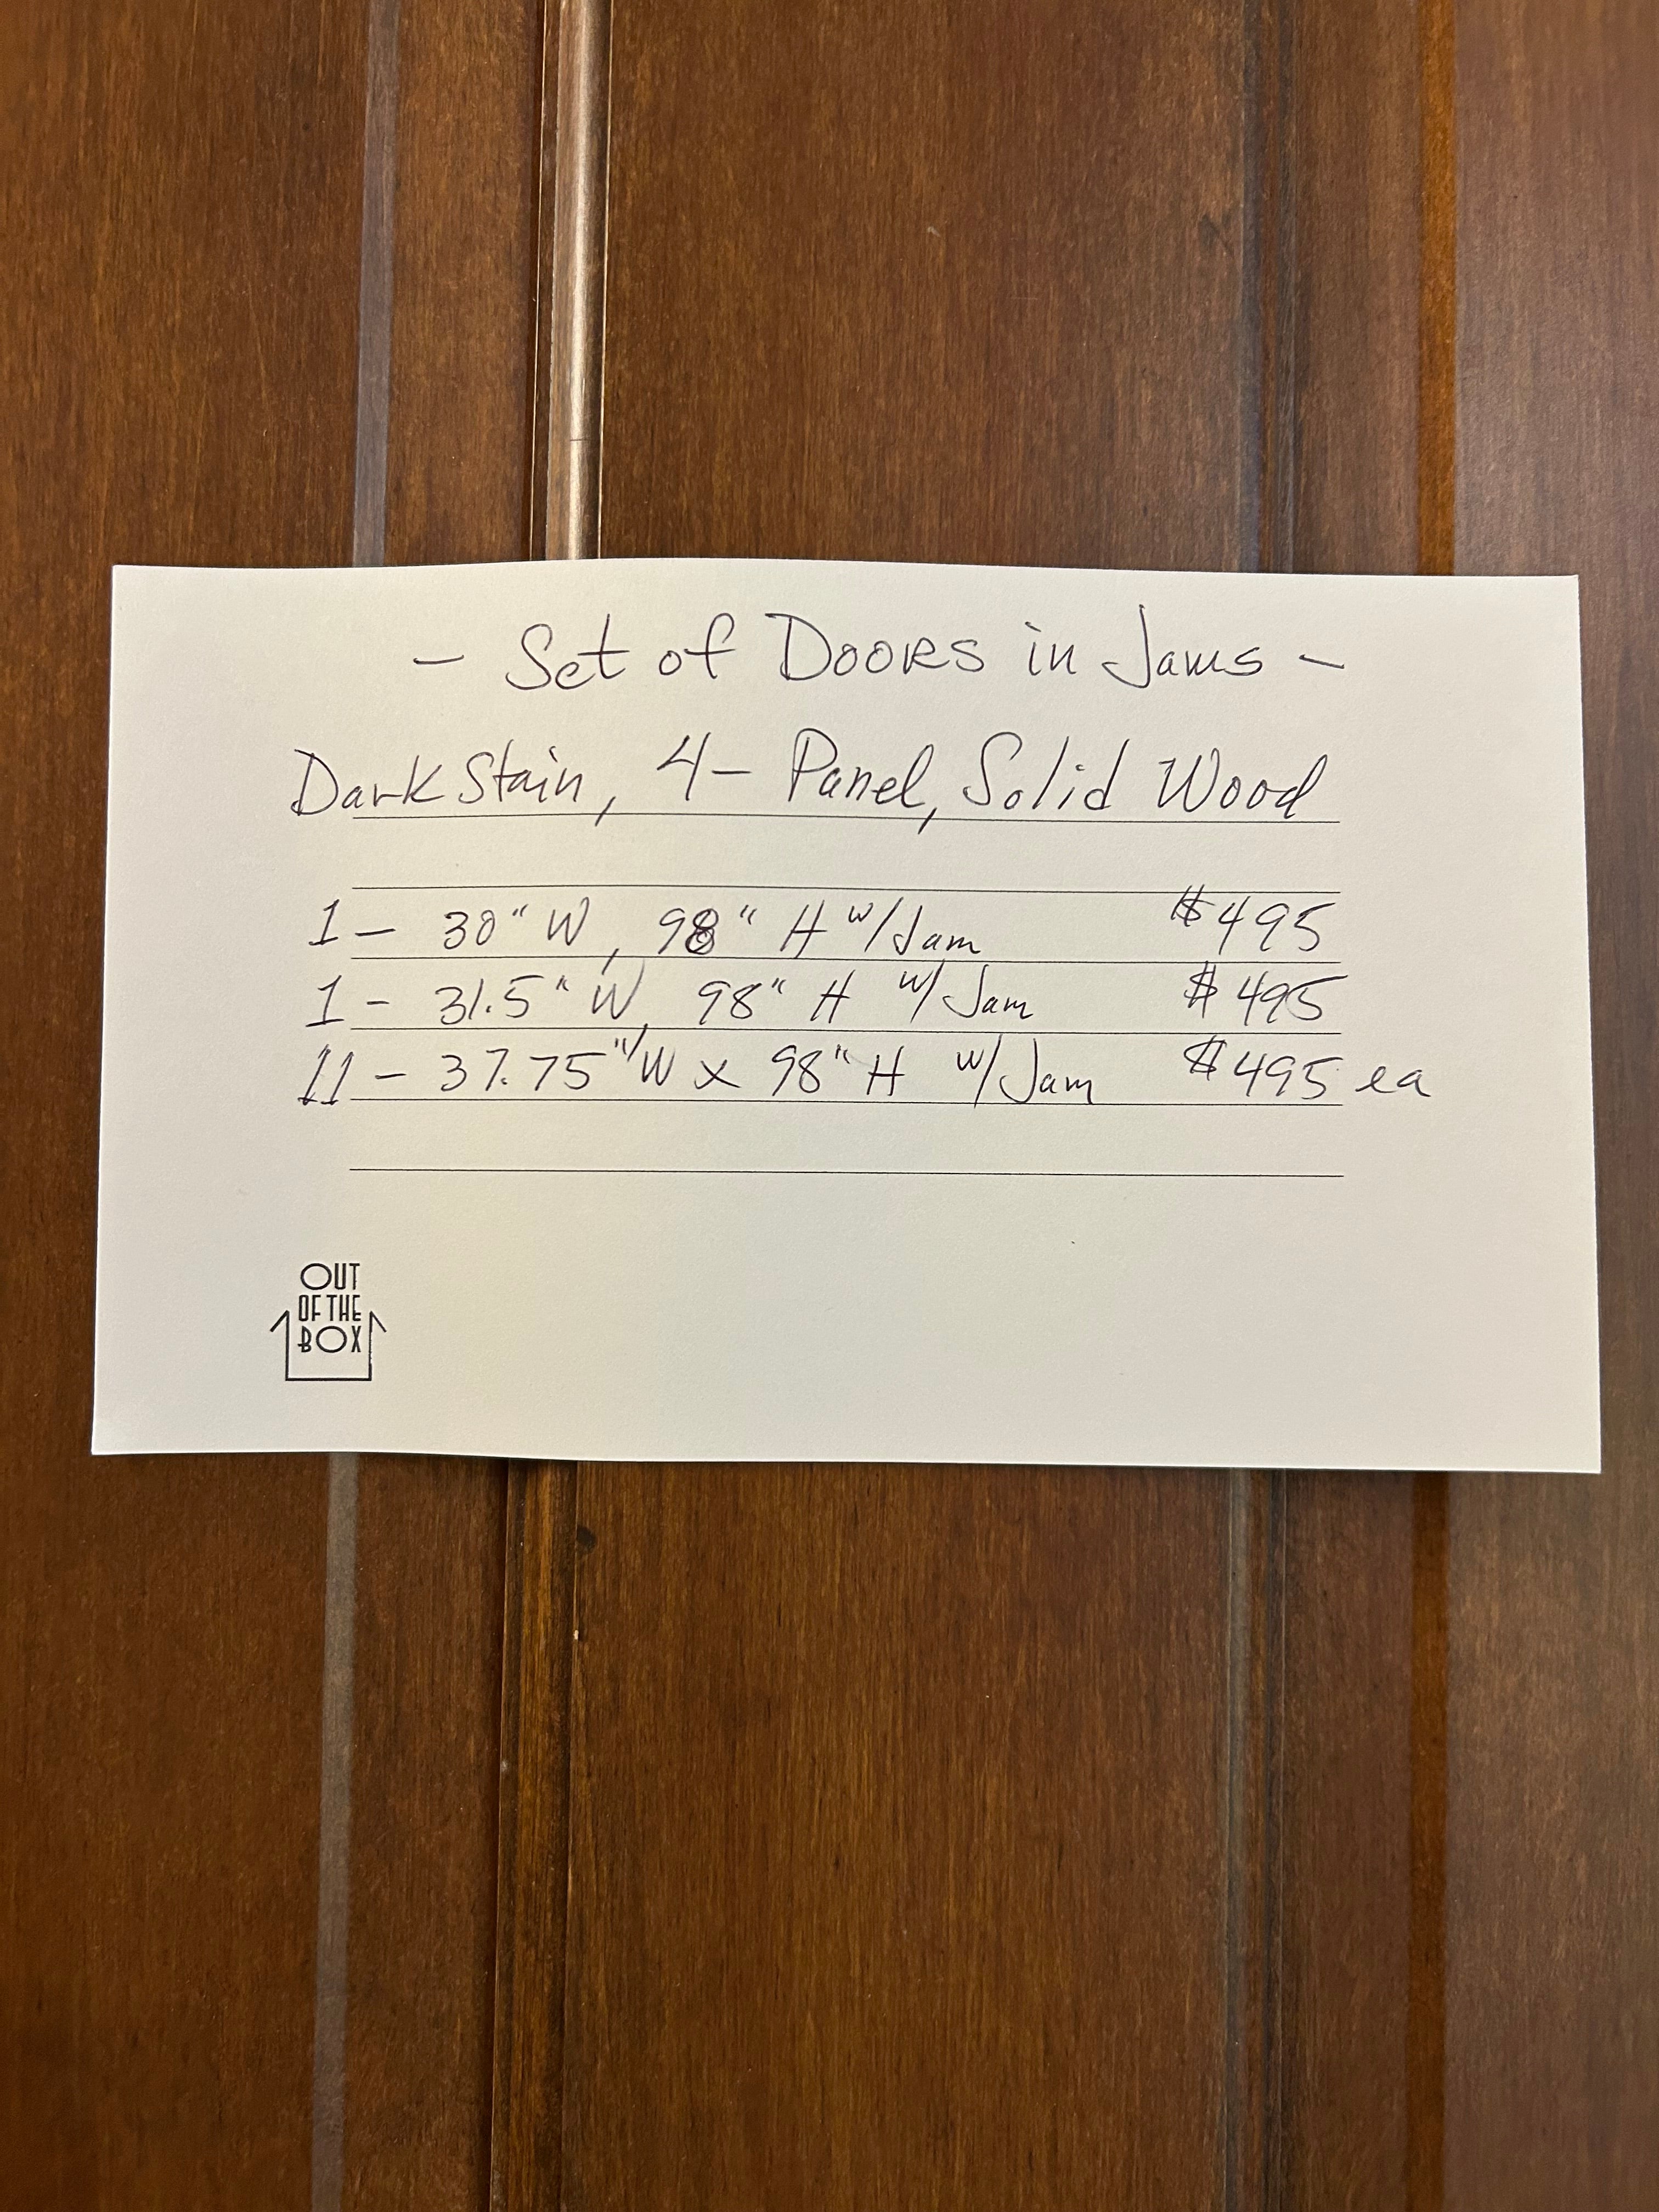 - Set of Doors in Jams -
Dark Stain, 4- Panel, Solid Wood
1- 30" W, 98" H w/Jam $495
1- 31.5" W, 98" H w/ Jam $495
11- 37.75" W x 98" H w/ Jam $495 ea
OUT
OF THE
BOX